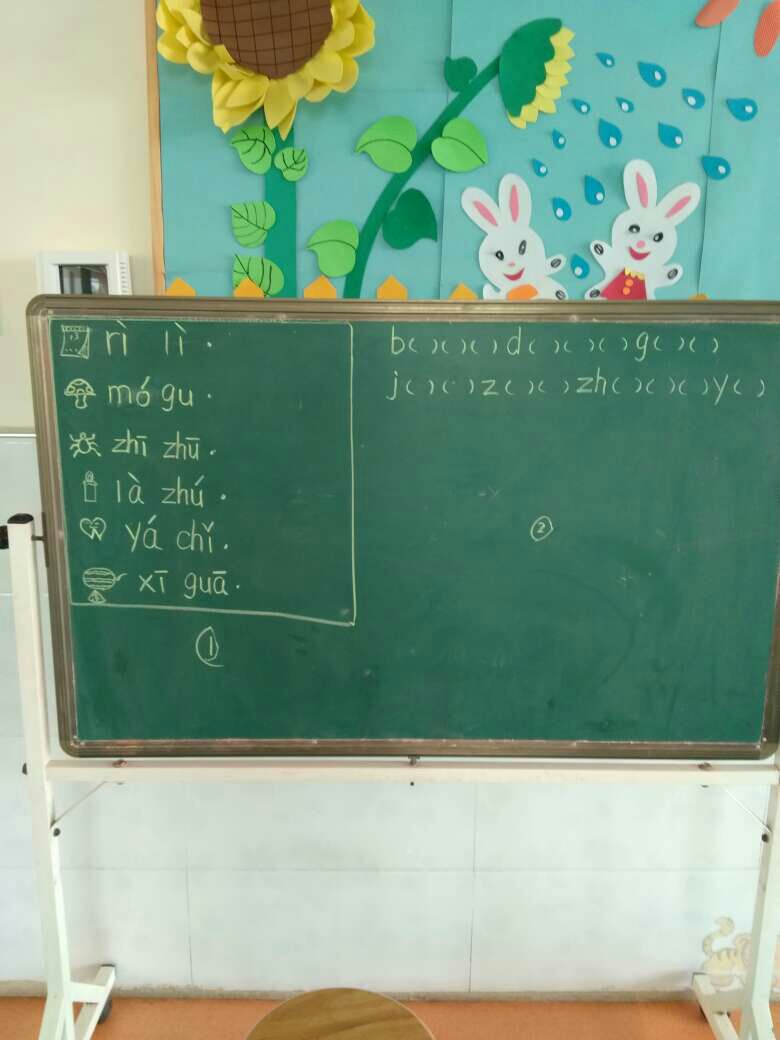 rì lì
mó gu
zhī zhū
là zhú
yá chǐ
xī guā
①
b( )( )( ) d( )( )( ) g( )( )
j( )( ) z( )( ) zh( )( )( ) y( )
②